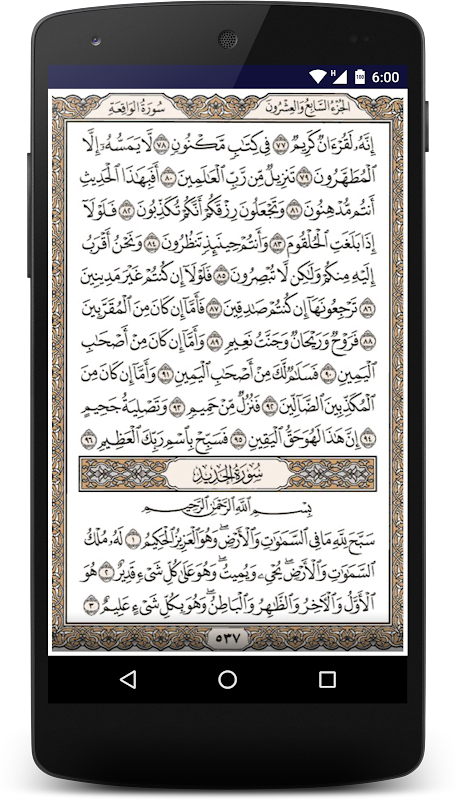 H 100 6:00
الجزء السابع والعشرون سورة الواقعة
إِنَّهُ لَقُرْءَانٌ كَرِيمٌ ٧٧ فِي كِتَٰبٍ مَّكْنُونٍ ٧٨ لَّا يَمَسُّهُ إِلَّا
الْمُطَهَّرُونَ ٧٩ تَنزِيلٌ مِّن رَّبِّ الْعَٰلَمِينَ ٨٠ أَفَبِهَٰذَا الْحَدِيثِ
أَنتُم مُّدْهِنُونَ ٨١ وَتَجْعَلُونَ رِزْقَكُمْ أَنَّكُمْ تُكَذِّبُونَ ٨٢ فَلَوْلَا
إِذَا بَلَغَتِ الْحُلْقُومَ ٨٣ وَأَنتُمْ حِينَئِذٍ تَنظُرُونَ ٨٤ وَنَحْنُ أَقْرَبُ
إِلَيْهِ مِنكُمْ وَلَٰكِن لَّا تُبْصِرُونَ ٨٥ فَلَوْلَا إِن كُنتُمْ غَيْرَ مَدِينِينَ
٨٦ تَرْجِعُونَهَا إِن كُنتُمْ صَٰدِقِينَ ٨٧ فَأَمَّا إِن كَانَ مِنَ الْمُقَرَّبِينَ
٨٨ فَرَوْحٌ وَرَيْحَانٌ وَجَنَّتُ نَعِيمٍ ٨٩ وَأَمَّا إِن كَانَ مِنْ أَصْحَٰبِ
الْيَمِينِ ٩٠ فَسَلَٰمٌ لَّكَ مِنْ أَصْحَٰبِ الْيَمِينِ ٩١ وَأَمَّا إِن كَانَ مِنَ
الْمُكَذِّبِينَ الضَّالِّينَ ٩٢ فَنُزُلٌ مِّنْ حَمِيمٍ ٩٣ وَتَصْلِيَةُ جَحِيمٍ
٩٤ إِنَّ هَٰذَا لَهُوَ حَقُّ الْيَقِينِ ٩٥ فَسَبِّحْ بِاسْمِ رَبِّكَ الْعَظِيمِ ٩٦
سورة الحديد
بِسْمِ اللَّهِ الرَّحْمَٰنِ الرَّحِيمِ
سَبَّحَ لِلَّهِ مَا فِي السَّمَٰوَٰتِ وَالْأَرْضِ ۖ وَهُوَ الْعَزِيزُ الْحَكِيمُ ١ لَهُ مُلْكُ
السَّمَٰوَٰتِ وَالْأَرْضِ ۖ يُحْيِي وَيُمِيتُ ۖ وَهُوَ عَلَىٰ كُلِّ شَيْءٍ قَدِيرٌ ٢ هُوَ
الْأَوَّلُ وَالْآخِرُ وَالظَّٰهِرُ وَالْبَاطِنُ ۖ وَهُوَ بِكُلِّ شَيْءٍ عَلِيمٌ ٣
٥٣٧